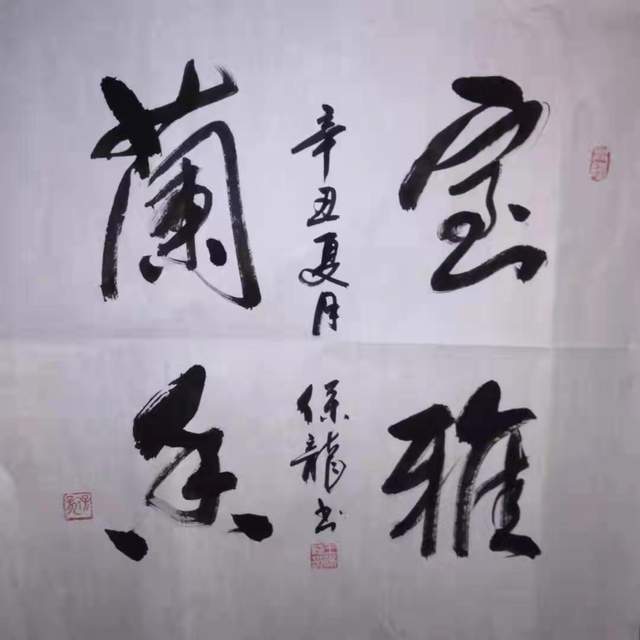 室雅
蘭香
辛丑夏月
保龍书